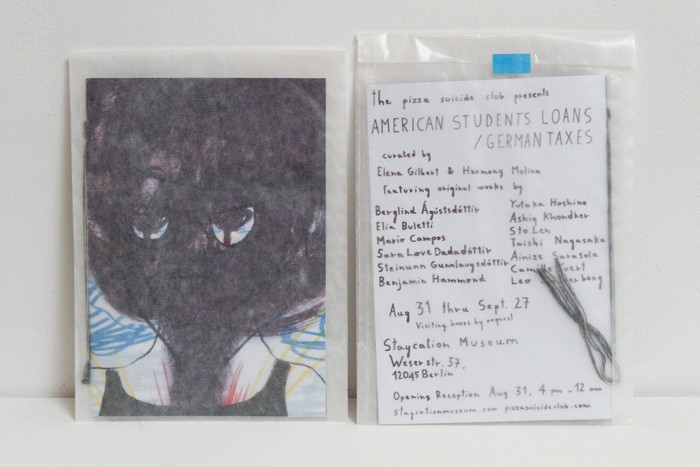 the pizza suicide club presents
AMERICAN STUDENTS LOANS
/GERMAN TAXES
curated by
Elena Gilbert & Harmony Molina
featuring original works by
Berglind Ágústsdóttir
Elia Buletti
Mario Campos
Sara Love Dadadóttir
Steinunn Gunnlaugsdóttir
Benjamin Hammond
Yutaka Hoshino
Ashiq Khondker
Sto Len
Taishi Nagasaka
Ainize Sarasola
Leo
Aug 31 thru Sept. 27
Visiting hours by request
Staycation Museum
Weserstr. 57,
12045 Berlin
Opening Reception Aug 31, 4 pm - 12 am
staycationmuseum.com pizzasuicideclub.com